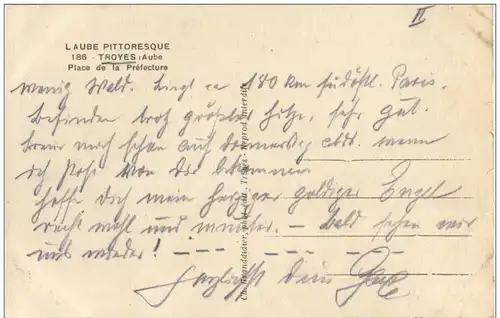 II
L'AUBE PITTORESQUE
186 - TROYES (Aube)
Place de la Préfecture
wenig Wald. Liegt ca 180 km südöstl. Paris.
Befinden trotz größter Hitze, sehr gut.
auch schon auf Donnerstag evtl. wenn
ich Post von Dir bekomme
hoffe doch mein herziger goldiger Engel
recht wohl und munter. – bald sehen wir
uns wieder! – – – –
Herzlichst Dein